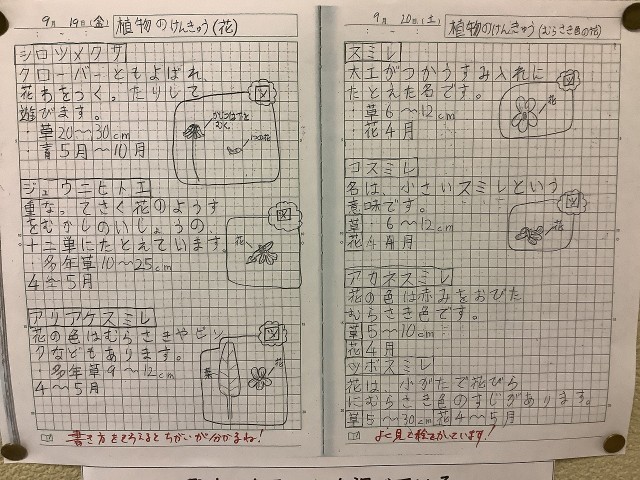 9月 19日(金) 植物のけんきゅう(花)
シロツメクサ
クローバーともよばれ、
花わをつくったりして
遊びます。
・草20〜30cm
・青5月〜10月
図
1つの花
ジュウニヒトエ
重なってさく花のようす
をむかしのいしょうの、
十二単にたとえています。
・多年草10〜25cm
4〜5月
図
花
アリアケスミレ
花の色はむらさきやピン
クなどもあります。
・多年草9〜12cm
4〜5月
図
葉
花
書き方をそろえるとちがいが分かるね!
9月 20日(土) 植物のけんきゅう(むらさき色の花)
スミレ
大工がつかうすみ入れに
たとえた名です。
・草6〜12cm
・花4月
図
花
コスミレ
名は、小さいスミレという
意味です。
・草6〜12cm
花4月
図
花
アカネスミレ
花の色は赤みをおびた
むらさき色です。
草5〜10cm
花4月
ツボスミレ
花は、小がたで花びら
にむらさき色のすじがあります。
草5〜30cm 花4〜5月